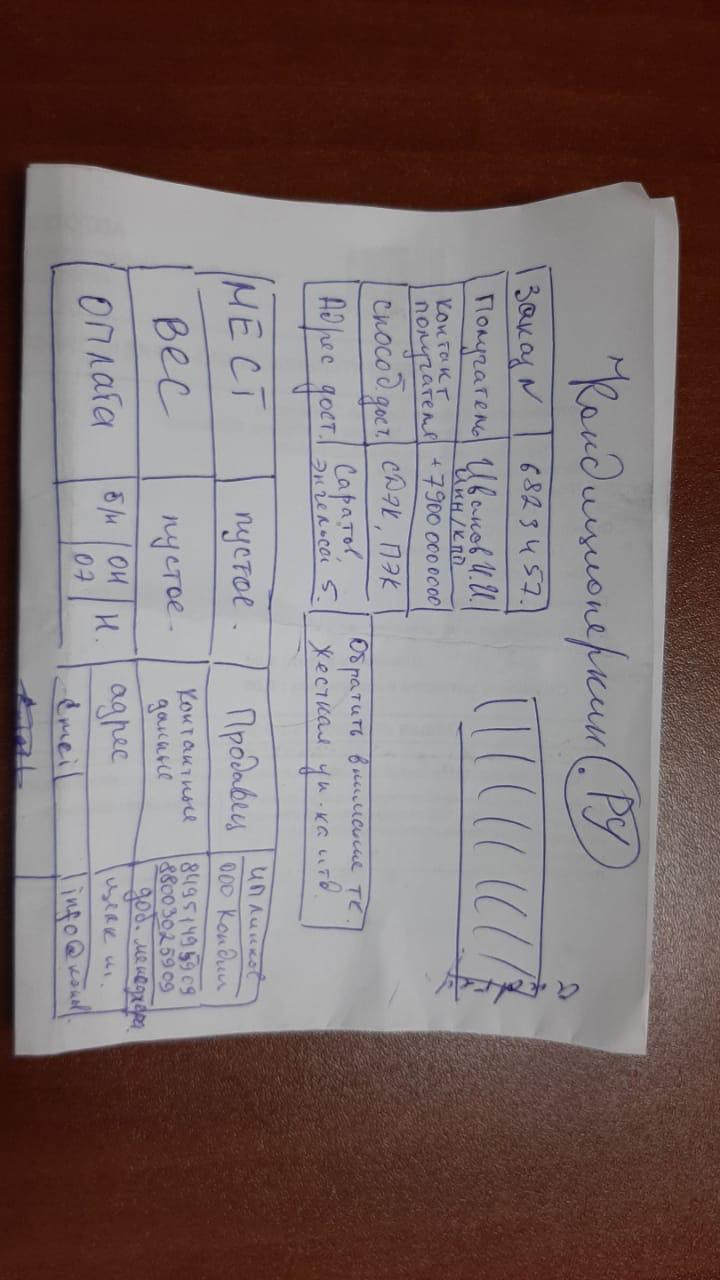 Кондиционеркин.РУ
Заказ N 6823457.
Получатель Иванов И.И.
ИНН/КПП
Контакт получателя +7900 000 00 00
Способ дост. СДЭК, ПЭК
Адрес дост. Саратов,
Энгельса 5.
Обратить внимание тк.
Жесткая уп-ка итд.
МЕСТ пустое.
Вес пустое.
Оплата б/н ОН Н.
07
Продавец ИП
ООО Кондиц
Контактные данные 84951495909
88003025909
доб. менеджера
адрес
Email info@конд.